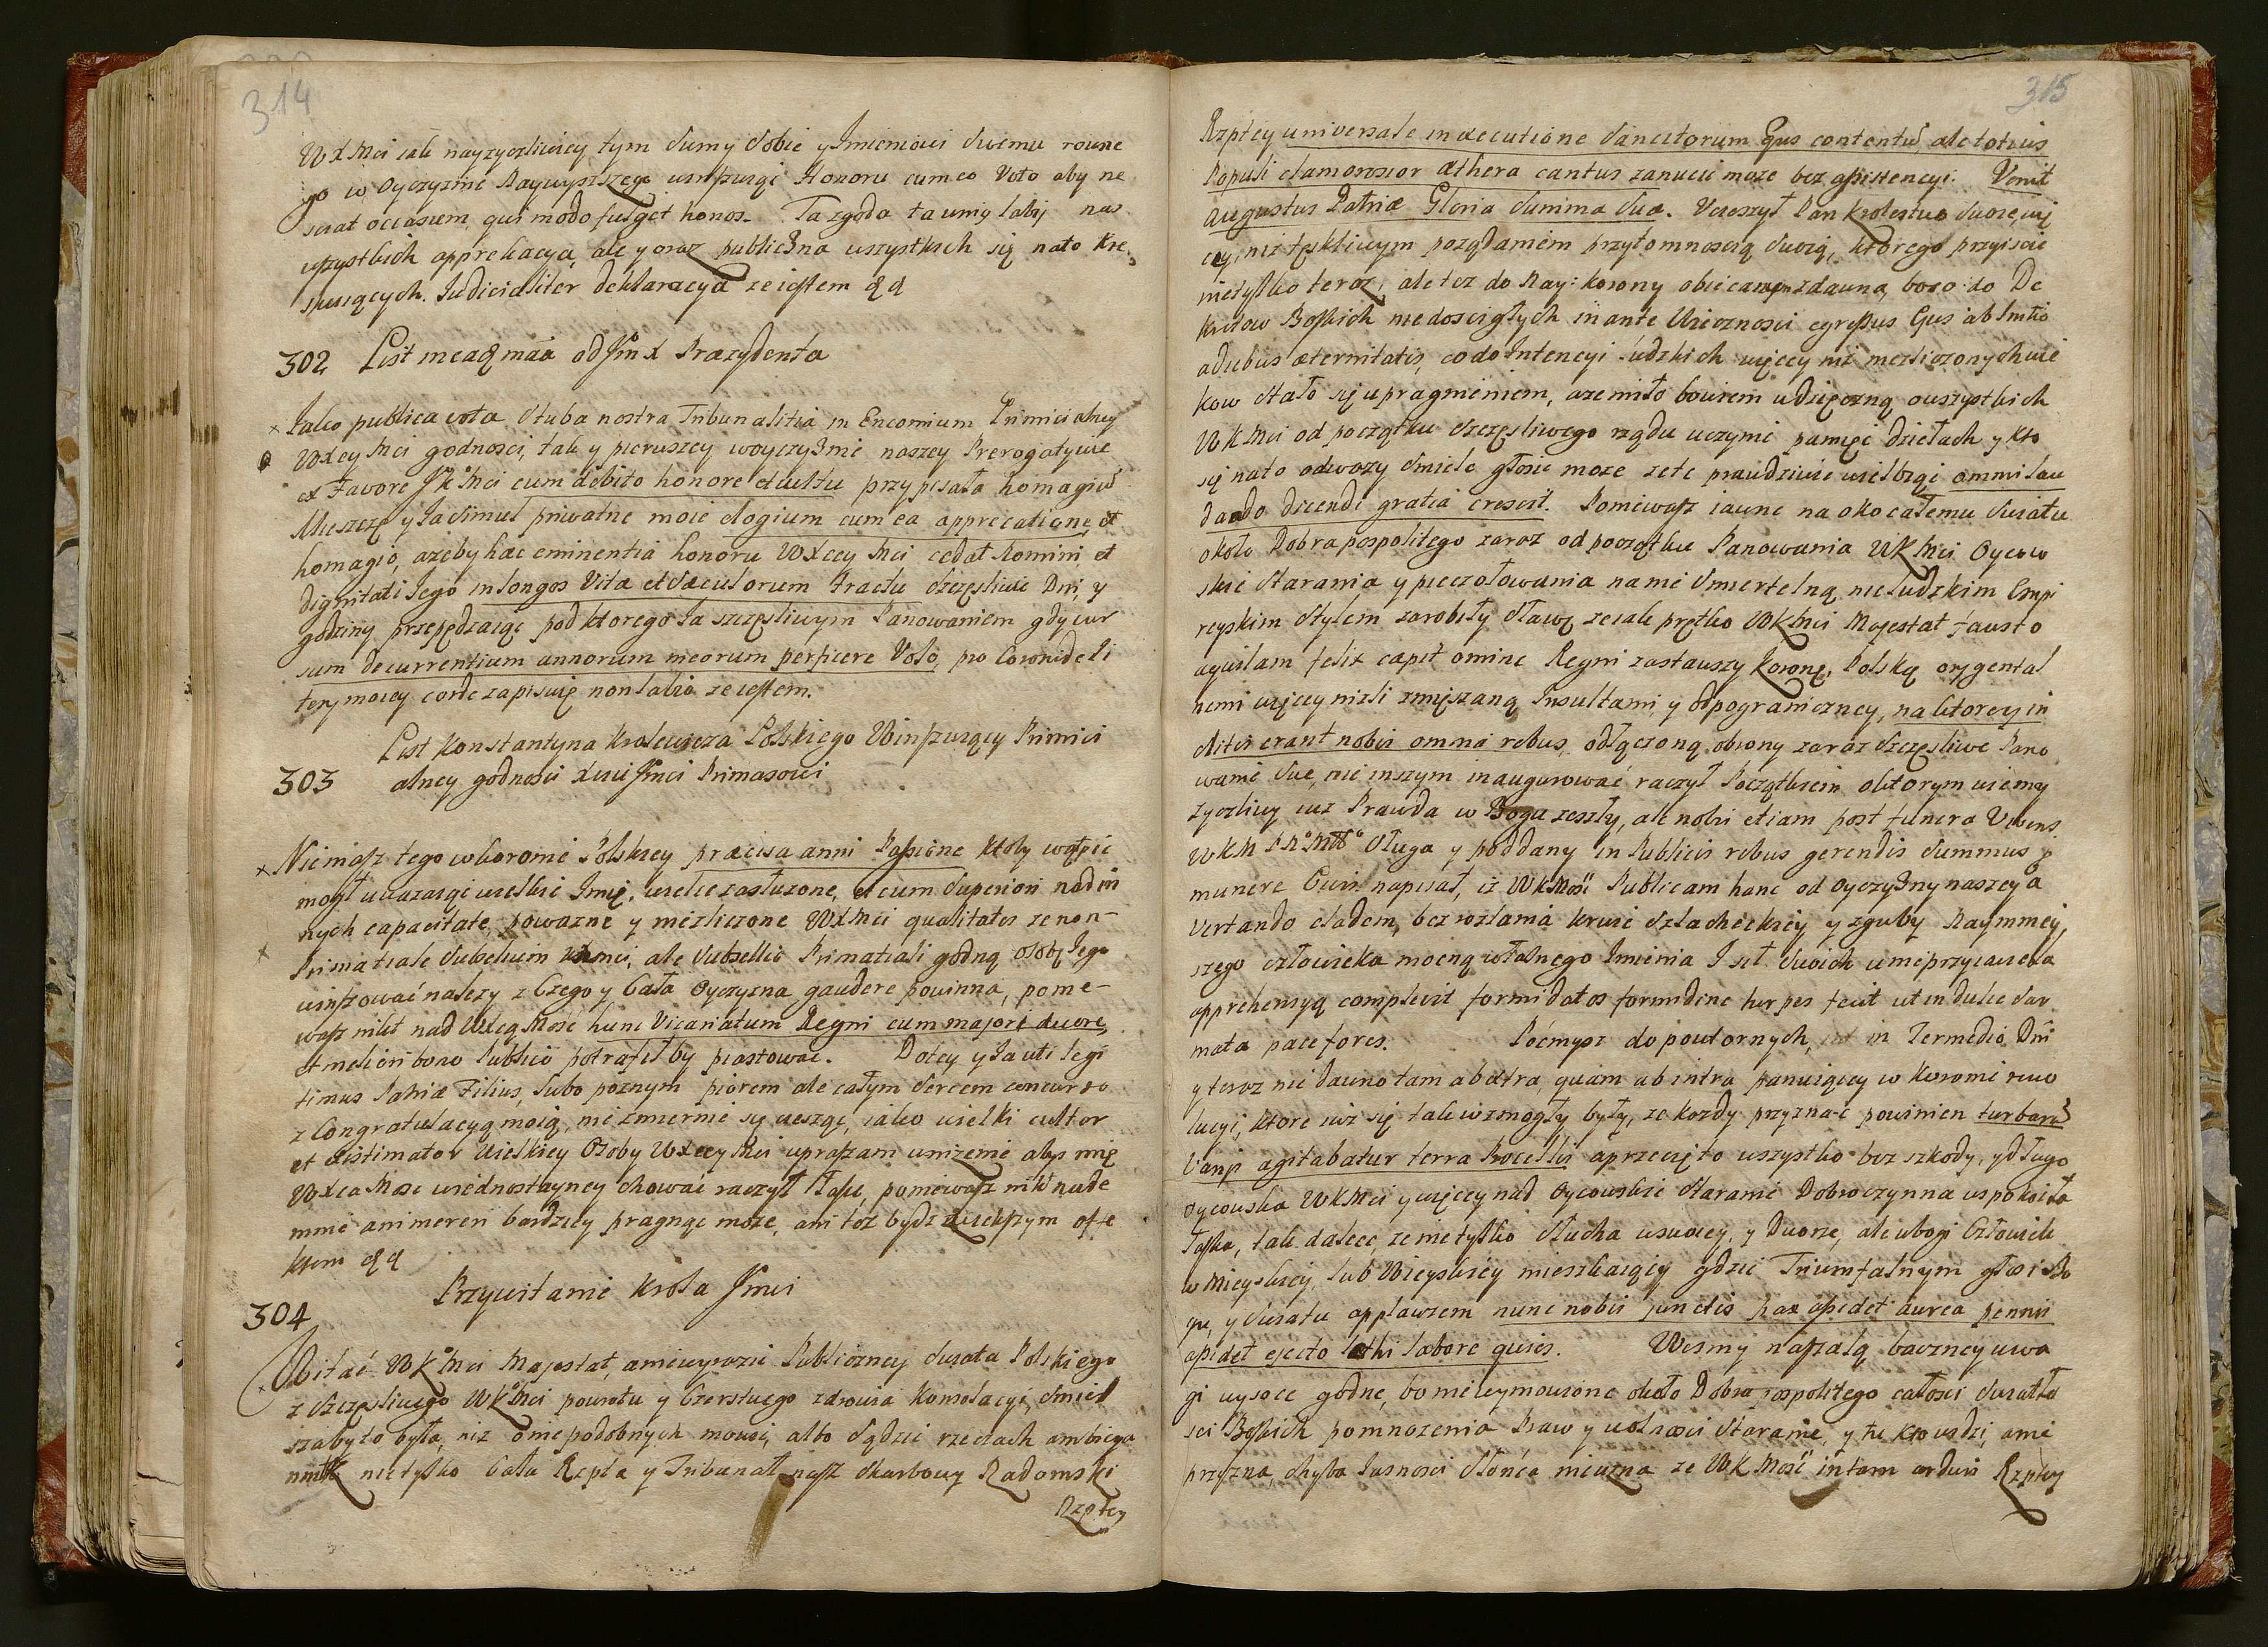 314
WX Mci iak nayzyczliwiey, tym Sumy Sobie y Imieniowi Swemu rowne
go w Oyczyznie Naywyszszego winszuięc Honoru cum eo Voto aby ne
sciat occasum, qui modo fulget honos. Ta zgoda ta unią labij nas
wszystkich apprekacya, ale y oraz publiczna wszystkich się na to kre
suiących. Iudicialiter deklaracya ze iestem qq
302 List mea q mäa od Jm X Prazydenta
Iako publica vota Stuba nostra Tribunalitia in Encomium Primicialney
WXey Mci godnosci, tak y pierwszey w oyczyznie naszey Prerogatywie
ex Favore JK Mci cum debito honore et cultu przypisała homagiu
Mieszczę y Ia Simul priwatne moie elogium cum ea apprecatione et
homagio, azeby hac eminentia honoru WXcey Mci cedat Nomini et
dignitati Iego in longos Vitæ et Sæculorum tractu szczęsliwie Dni y
godziny przepędzaiąc pod ktorego Ia szczęsliwym Panowaniem gdy cur
sum decurrentium annorum meorum perficere Volo, pro Coronide li
tery moiey corde zapisuię non labio ze iestem.
List Konstantyna Krolewicza Polskiego Winszuiący Primici
303 alney godnosci Xciu Jmci Primasowi
Niemasz tego w Koronie Polskiey præcisa omni Passione ktoby wątpic
mogł uwazaiąc wielkie Imię, wielce zasłuzone, et cum Superiori nad in
nych capacitate, powazne y niezliczone WX Mci qualitates ze non-
Primatiale Subselium ale Subsellio Primatiali godną osobę Iego
winszować nalezy z Czego y Cała Oyczyzna gaudere powinna, ponie-
wasz nikt nad WXcą Mość hunc Vicariatum Regni cum majori decore,
et meliori bono Publico potrafiłby piastować. Dołey y Ia uti legi
timus Patriæ Filius, lubo poznym piorem ale całym Sercem concurro
z Congratulacyą moią, niezmiernie się ciesząc, iako wielki cultor
et æstimator Wielkiey Osoby WXcey Mci upraszam unizenie abys mię
WXca Mosc w iednostayney chować raczył łasce, poniewasz nikt nade
mnie animereri bardziey pragnąc moze, ani tez bydz wiekszym affe
ktem qq
Przywitanie Krola Jmci
304
Witać WK Mci Majestat, a niewyrazic Publiczney Swiata Polskiego
z Szczęsliwego WK Mci powrotu y Czerstwego zdrowia Konsolacyi, Smiel
sza by to była, niz o niepodobnych mowić, albo Sądzić rzeczach ambicya
nie tylko Cała Rzplta y Tribunał nasz Skarbowy Radomski
Rzpltey
315
Rzpltey universale in executione Sancitorum Ejus contentu, ale totius
Populi clamorosior Æthera cantus zanucic moze bez assistencyi. Venit
augustus Patriæ Gloria Summa Suæ. Ucieszył Pan Krolestwo Swoie, wię
cey, niz tęskliwym poządaniem przytomnoscią Swoią, ktorego przyiscie
nie tylko teraz, ale tez do Nay: Korony obiecanym zdawna, bo co do De
kretow Boskich niedoscigłych in ante Wiecznosci egressus Ejus ab Initio
a diebus æternitatis, co do Intencyi ludzkich więcey niz niezliczonych wie
kow stało się upragnieniem, a ze miło bowiem wdzięczną o wszystkich
WK Mci od początku Szczęsliwego rządu uczynić pamięć dziełach y kto
się na to odwazy Smiele głosic moze zete prawdziwie wielbiąc omni lau
dando dicendi gratia crescit. Poniewasz iawne na oko całemu Swiatu
około Dobra pospolitego zaraz od początku Panowania WK Mci Oycow
skie Starania y pieczołowania na nie Smiertelną nie ludzkim Empi
reyskim Stylem zarobiły Sławę ze iak prętko WK Mci Majestat fausto
aquilam felix cepit omine Regni zastawszy Koronę, Polską orygental
nemi więcey nizli zmięszaną Insultami, y od pograniczney, na ktorey in
clitis erant nobis omnia rebus, odłączoną obrony zaraz Szczęsliwe Pano
wanie Swe, nie inszym inaugurować raczył Początkiem o ktorym wiemy
zyczliwy iuz Prawda w Bogu zeszły, ale nobis etiam post funera Vivens
WKM P.N. Mgo Sługa y poddany in Publicis rebus gerendis Summus
munere Civis napisał, iz WK Mość Publicam hanc od Oyczyzny naszey a
vertando cladem, bez rozlania krwie Szlacheckiey y zguby Naymniey
szego człowieka mocną własnego Imienia I Sił Swoich umieprzyiaciela
apprehensyą complevit formidatos formidine turpes fecit ut in dulce Sar
mata pace fores. Poćmysz do powtornych, in Termedio Dni
y teraz nie dawno tam ab extra, quam ab intra panuiącey w Koronie rewo
lucyi, ktore iuz się tak wzmogły były, ze kazdy przyznać powinien turbarü
Vanis agitabatur terra Procellis a przecię to wszystko bez szkody, y długo
oycowska WK Mci y więcey nad Oycowskie Staranie Dobroczynna uspokoiła
łaska, tak dalece, ze nie tylko Słucha y Dworze, ale ubogi Człowiek
w Mieyskiey, lub Wieyskiey mieszkaiący gdzie Triumfalnym głosi Bo
gu, y Swiatu applawzem nunc nobis junctis pax assidet aurea pennis
assidet ejecto lethi labore quies. Wezmy na szalę baczney uwa
gi wysoce godne, bo niewymowione około Dobra pospolitego całosci Swiątło
sci Boskich pomnozenia Praw y wolnosci Staranie, y tu kto widzi, a nie
przyzna, chyba Iasnosci Słońca niewzna ze WK Mość in tam arduis Rzpltey